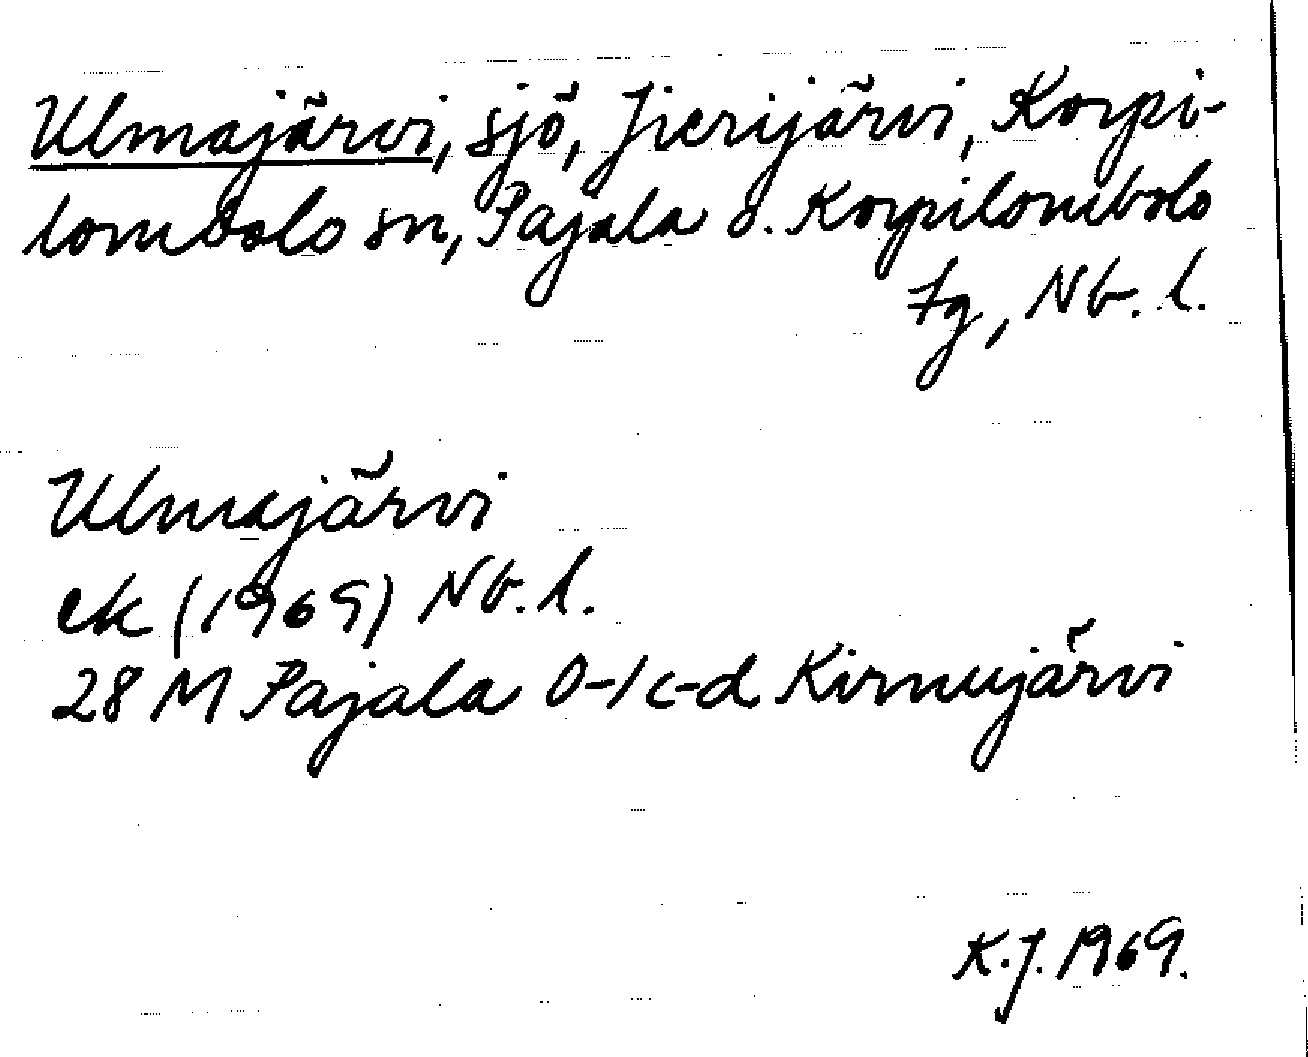 Ulmajärvi, sjö, Jierijärvi, Korpi-
lombolo sn, Pajala o. Korpilombolo
tg, Nb. l.
Ulmajärvi
ek (1969) Nb. l.
28 M Pajala 0-1c-d Kirnujärvi
K.J. 1969.